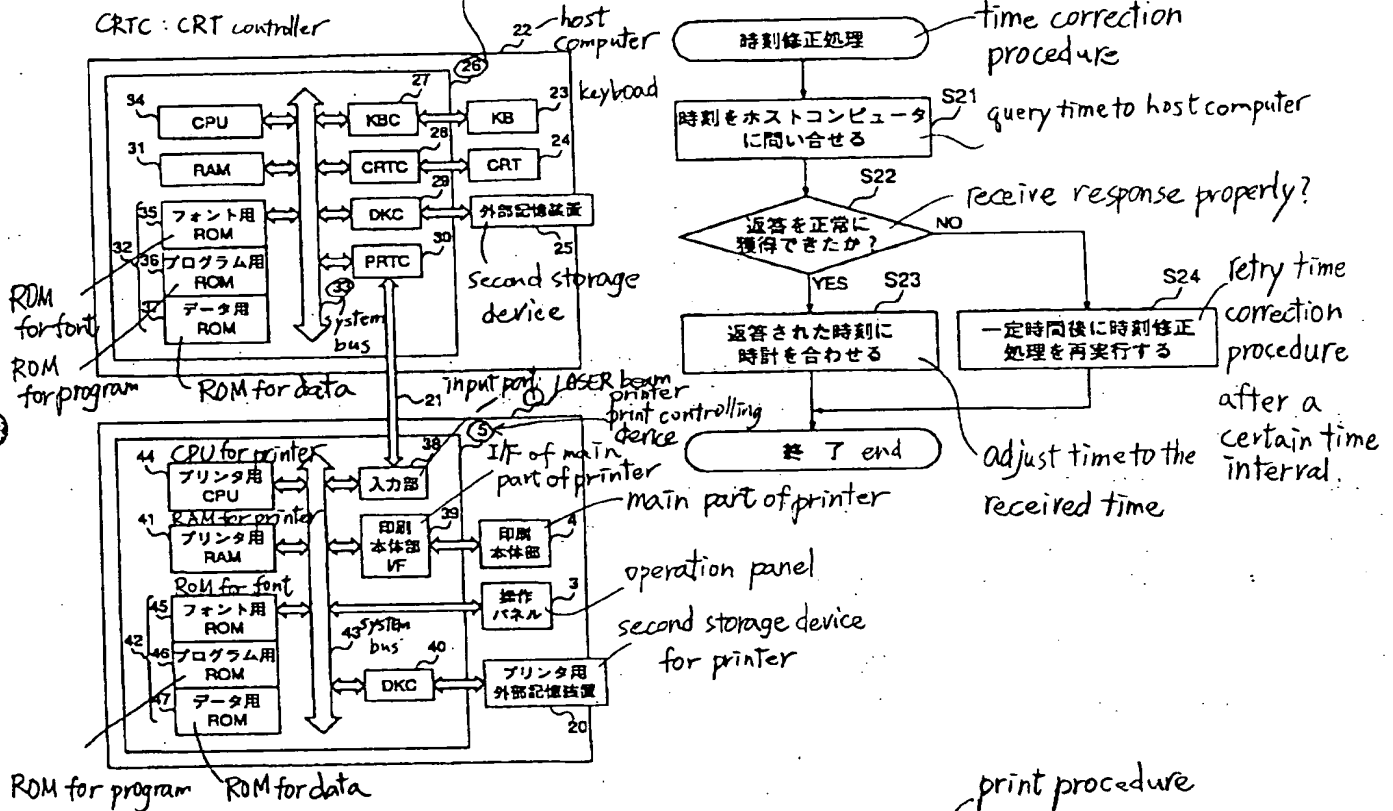 CRTC : CRT controller
22
host
computer
26
27
34
CPU
KBC
23
keyboad
KB
28
31
RAM
CRTC
24
CRT
29
35
フォント用
ROM
DKC
外部記憶装置
25
32
36
プログラム用
ROM
30
PRTC
second storage
device
37
データ用
ROM
33
system
bus
ROM
for font
ROM
for program
ROM for data
21
input port
1
LASER beam
printer
print controlling
device
5
CPU for printer
38
44
プリンタ用
CPU
入力部
I/F of main
part of printer
RAM for printer
39
41
プリンタ用
RAM
印刷
本体部
I/F
4
印刷
本体部
main part of printer
ROM for font
45
フォント用
ROM
3
操作
パネル
operation panel
42
46
プログラム用
ROM
43
system
bus
40
DKC
プリンタ用
外部記憶装置
20
second storage device
for printer
47
データ用
ROM
ROM for program
ROM for data
時刻修正処理
time correction
procedure
S21
時刻をホストコンピュータ
に問い合せる
query time to host computer
S22
返答を正常に
獲得できたか?
receive response properly?
NO
YES
S23
返答された時刻に
時計を合わせる
S24
一定時間後に時刻修正
処理を再実行する
retry time
correction
procedure
after a
certain time
interval.
終了 end
adjust time to the
received time
print procedure